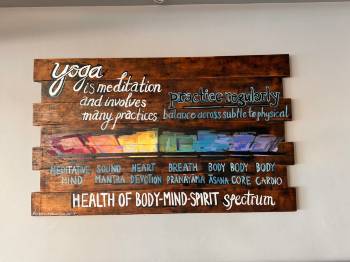 yoga
is meditation
and involves
many practices
practice regularly
balance across subtle to physical
MEDITATIVE SOUND HEART BREATH BODY BODY BODY
MIND MANTRA DEVOTION PRANAYAMA ĀSANA CORE CARDIO
HEALTH OF BODY-MIND-SPIRIT spectrum